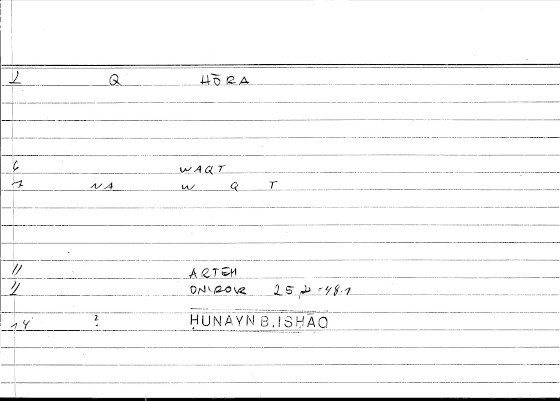 1 Q HŌRA
6 WAQT
7 NA W Q T
11 ARTEM
11 ONIROCR 25,2-48.1
14 ? HUNAYN B.ISHĀQ